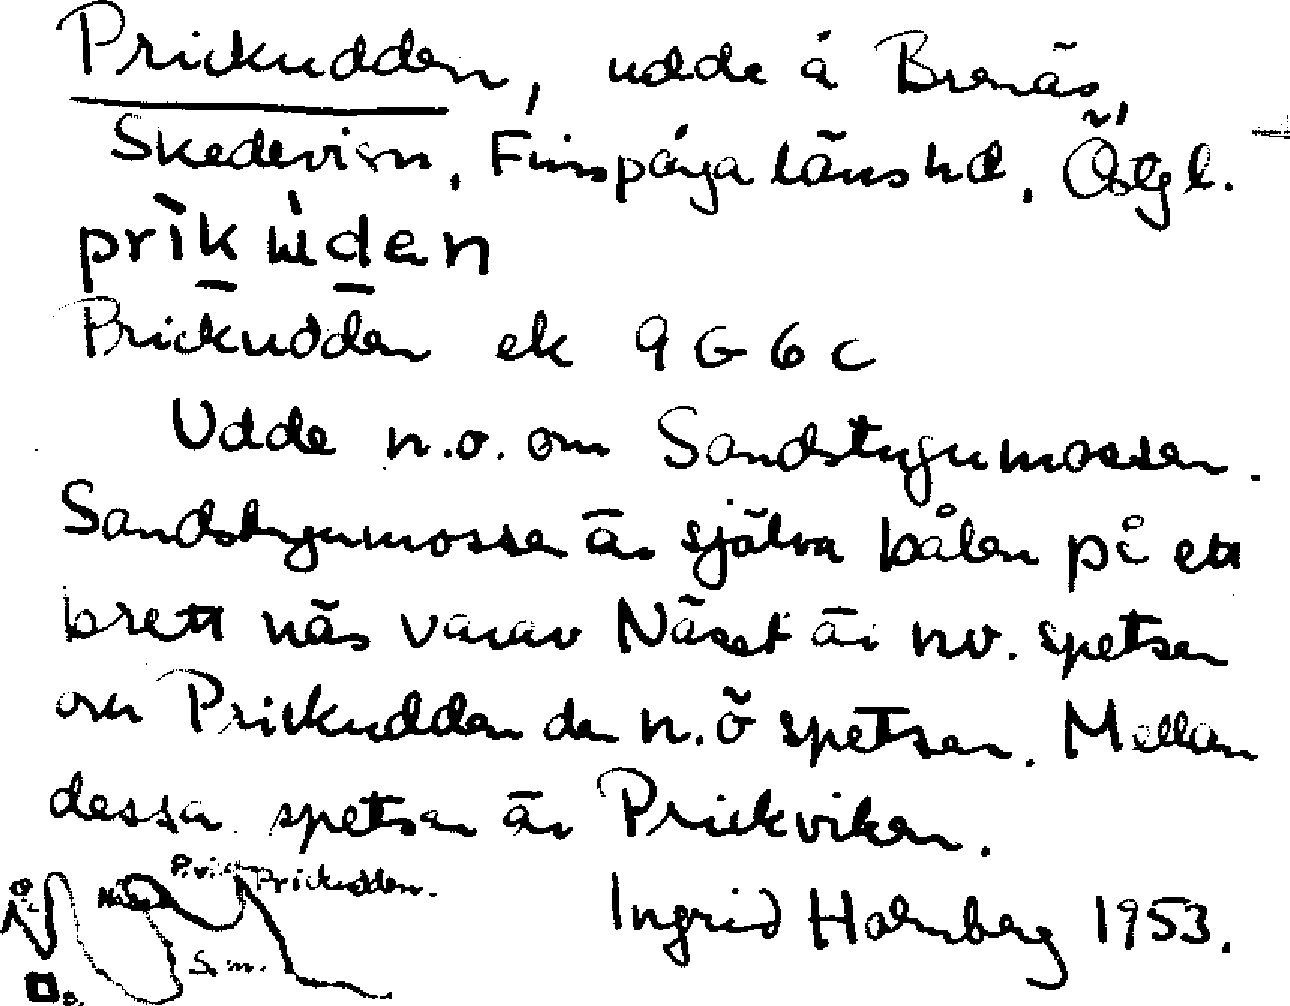 Prickudden, udde å Brenäs,
Skedevi sn, Finspånga läns hd, Östgl.
prikudən
Prickudden ek 9 G 6 c
Udde n.o. om Sandstugumossen.
Sandstugumossen är själva bålen på ett
brett näs varav Näset är nv. spetsen
om Prickudden den n.ö spetsen. Mellan
dessa spetsar är Prickviken.
Prickudden.
S.m.
Ingrid Holmberg 1953.